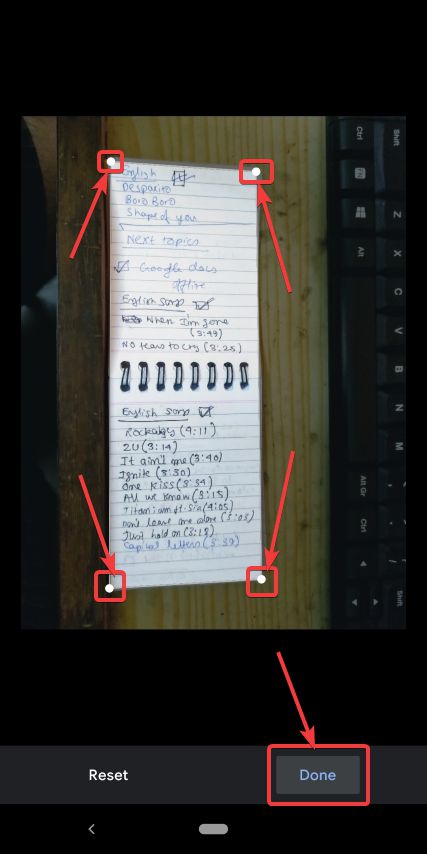 English
Despacito
Boro Boro
Shape of you
Next topics
Google docs
offline
English song
When I'm gone
(3:49)
No tears to cry (3:25)
English song
Rockabye (4:11)
2U (3:14)
It ain't me (3:40)
Ignite (3:30)
One kiss (3:34)
All we know (3:15)
Titanium ft. Sia (4:05)
Don't leave me alone (3:03)
Just hold on (3:18)
Capital letters (3:39)
Ctrl
Shift
Z
Alt
X
C
V
B
N
M
Alt Gr
Ctrl
/
Shift
Reset
Done